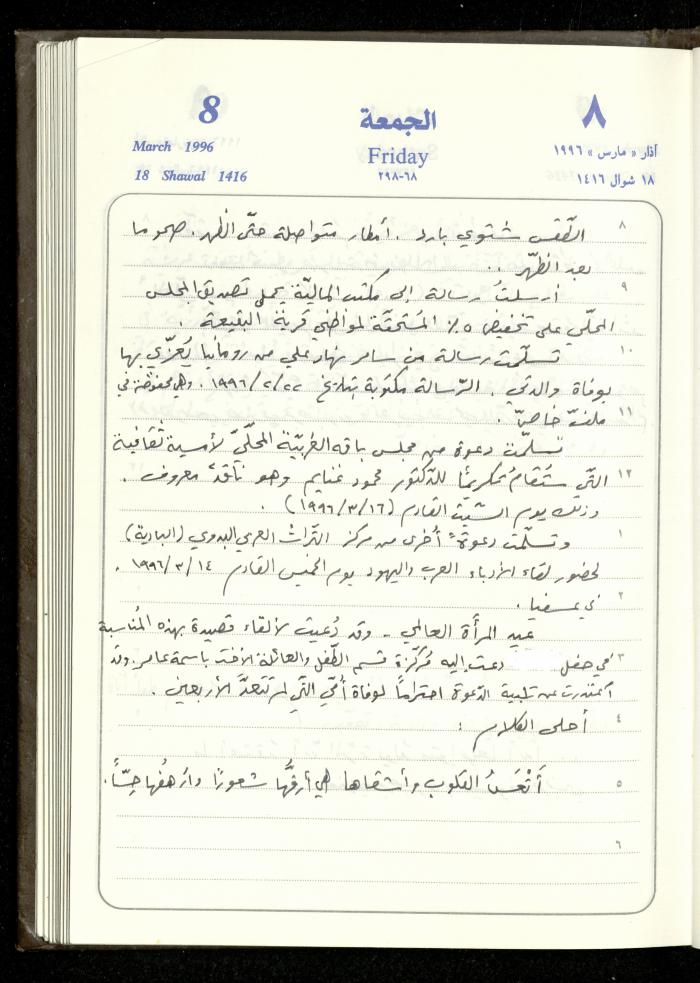 8
March 1996
18 Shawal 1416
الجمعة
Friday
٦٨-٢٩٨
٨
آذار « مارس » ١٩٩٦
١٨ شوال ١٤١٦
٨ الطّقس شتوي بارد . أمطار متواصلة حتّى الظهر. صحو ما
بعد الظّهر ..
٩ أرسلتُ رسالة إلى مكتب الماليّة يحمل تصديق المجلس
المحلّي على تخفيض ٥٪ المُستحقّة لمواطني قرية البقيعة .
١٠ تسلّمت رسالة من سامر نهاد علي من رومانيا يُعزّي بها
بوفاة والدتي . الرّسالة مكتوبة بتاريخ ١٩٩٦/٢/٢٢ . وهي محفوظة في
١١ ملفّ خاصّ .
تسلّمت دعوة من مجلس باقه الغربيّة المحلّيّ لأمسية ثقافية
١٢ التي ستُقامُ تكريمًا للدّكتور محمود غنايم وهو ناقدٌ معروف .
وذلك يوم السّبت القادم (١٩٩٦/٣/١٦) .
١ وتسلّمت دعوةً أخرى من مركز التّراث العربي البدوي (البادية)
لحضور لقاء الأدباء العرب واليهود يوم الخميس القادم ١٩٩٦/٣/١٤ .
٢ في عسفيا .
عيد المرأة العالمي - وقد دُعيت لألقاء قصيدة بهذه المُناسبة
٣ في حفل دعت إليه مُركّزة قسم الطّفل والعائلة الأخت باسمة عامر. وقد
اعتذرت عن تلبية الدّعوة احترامًا لوفاة أمّي التّي لم تتعدَّ الأربعين .
٤ أحلى الكلام :
٥ أَتْعَسُ القلوب وأشقاها هي أرقُّها شعورًا وأرهفُها حِسًّا.
٦